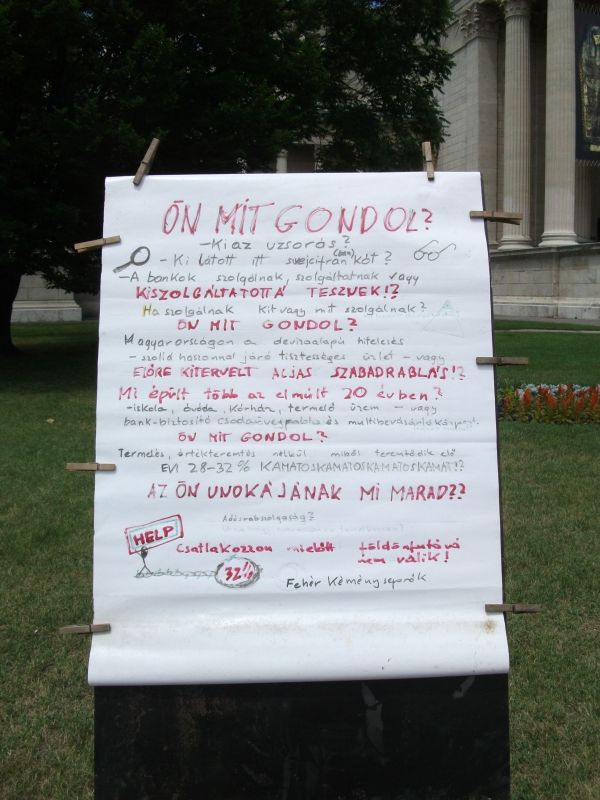 ÖN MIT GONDOL?
- Ki az uzsorás?
- Ki látott itt svájcifrankot?
(ban)
- A bankok szolgálnak, szolgáltatnak vagy
KISZOLGÁLTATOTTÁ TESZNEK!?
Ha szolgálnak Kit vagy mit szolgálnak?
ÖN MIT GONDOL?
Magyarországon a devizaalapú hitelezés
- szolid haszonnal járó tisztességes üzlet - vagy
ELŐRE KITERVELT ALJAS SZABADRABLÁS!?
Mi épült több az elmúlt 20 évben?
- iskola, óvoda, kórház, termelő üzem - vagy
bank-biztosító csodaüvegpalota és multibevásárlóközpont.
ÖN MIT GONDOL?
Termelés, értékteremtés nélkül miből teremtődik elő
ÉVI 28-32 % KAMATOSKAMATOSKAMATOSKAMAT!?
AZ ÖN UNOKÁJÁNAK MI MARAD??
Adósrabszolgaság?
HELP
Csatlakozzon mielőtt földönfutóvá
nem válik!
32%
Fehér Kéményseprők